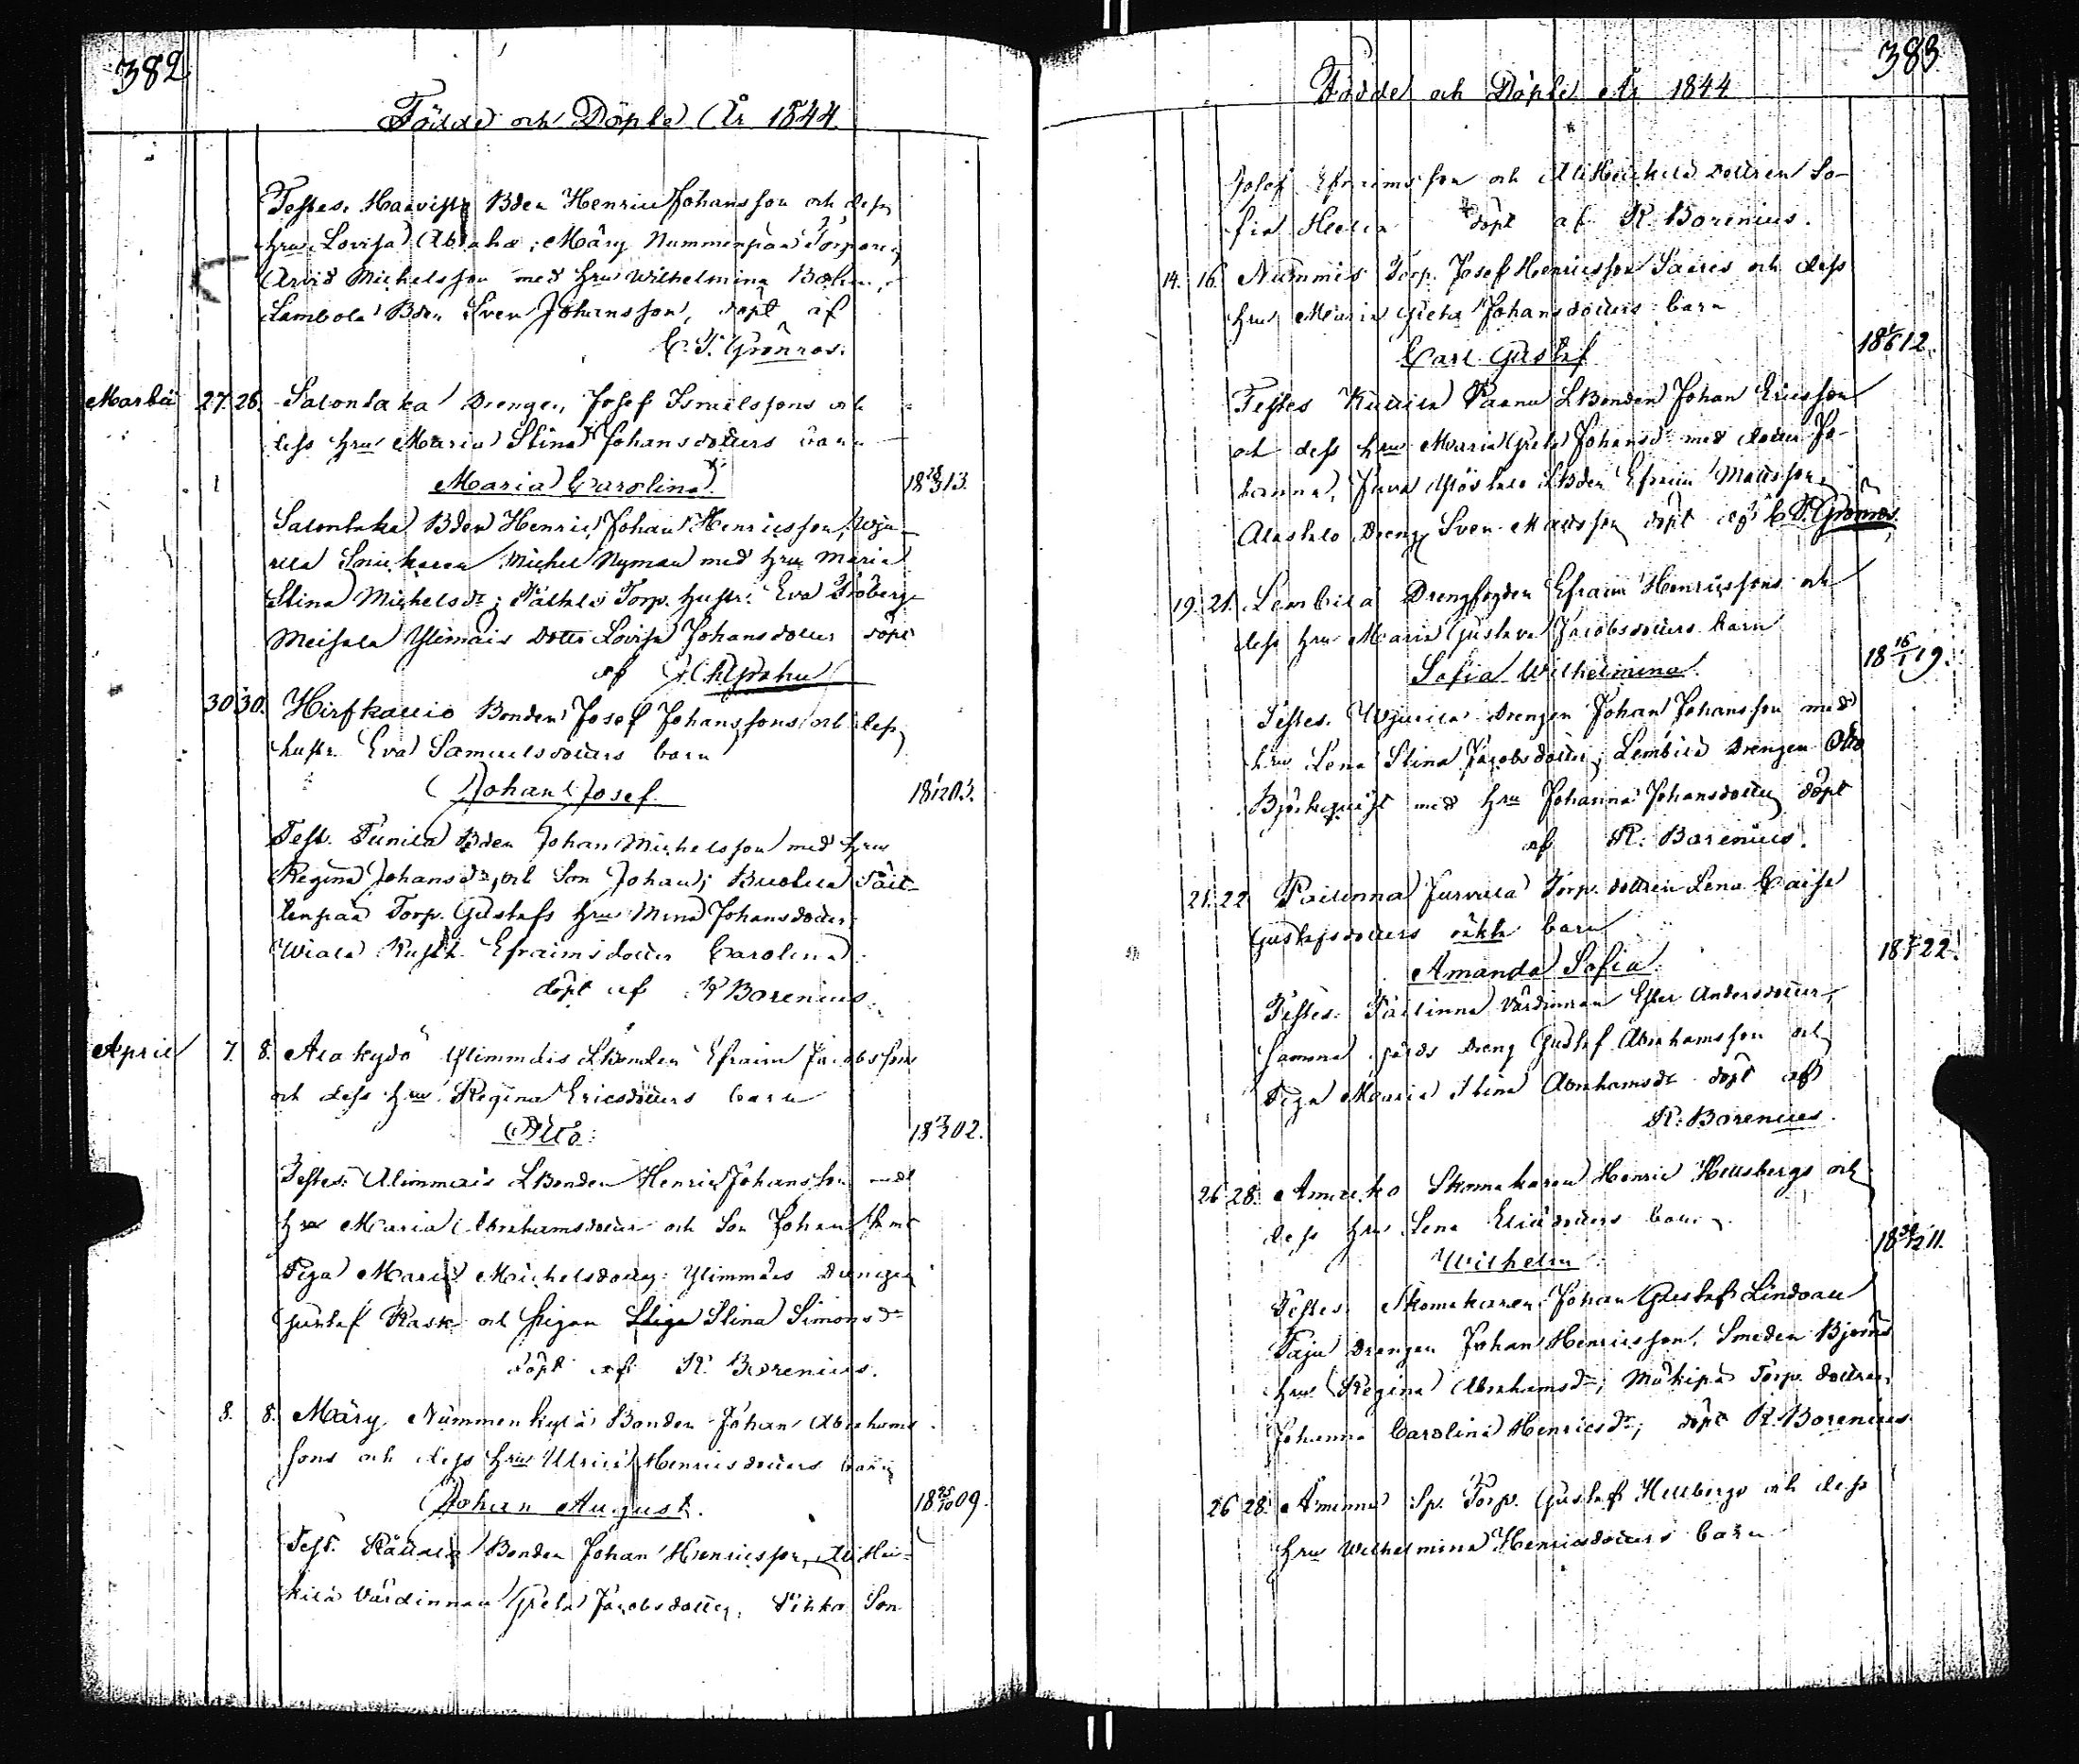 382
Födde och Döpte År 1844.
Testes. Haavisto Bden Henric Johansson och dess
hru Lovisa Abraha; Märy Nummenpää Torparen
Arvid Michelsson med hru Wilhelmina
Lambola Bden Sven Johansson, döpt af
C. T. Grönroos.
Martii 27. 28. Salonlaka Drengen Josef Ismelssons och
dess hru Maria Stina Johansdotters barn
1 Maria Carolina. 18 28/3 13.
Salonlaka Bden Henric Johan Henricsson,
Snickaren Michel Nyman med hru Maria
Stina Michelsdr; Torp. hustr. Eva
Meisala Ylimäis Dottr Lovisa Johansdotter döpt
af Grahn
30 30. Hirsikallio Bonden Josef Johanssons och dess
hustr. Eva Samuelsdotters barn
Johan Josef. 18 03.
Test. Tunila Bden Johan Michelsson med hru
Regina Johansdr, och Son Johan;
Torp. Gustafs hru Mina Johansdotter
Wiala Kusk. Efraimsdotter Carolina.
döpt af R Borenius.
April 7. 8. Alakydö Ylimmäis LBonden Efraim Jacobssons
och dess hru Regina Ericsdotters barn
Otto. 18 02.
Testes: Alimmais LBonden Henric Johansson med
hru Maria Abrahamsdotter och Son Johan
Piga Maria Michelsdotter: Ylimmäis Drengen
Gustaf Rask och pigan Stina Simonsdr
döpt af R. Borenius.
8. 8. Märy Nummenkylä Bonden Johan Abrahams
sons och dess hru Ulrica Henricsdotters barn
Johan August. 18 25/10 09.
Test. Bonden Johan Henricsson, Ali Hei-
kilä Värdinnan Greta Jacobsdotter, Son
383.
Födde och Döpte År 1844
Josef Efraimsson och Ali Heikilä dottren So-
fia döpt af R. Borenius.
14. 16. Nummis Torp. Josef Henricsson Saaris och dess
hru Maria Greta Johansdotters barn
Carl Gustaf 18 12.
Testes Paanu LBonden Johan Ericsson
och dess hru Maria Greta Johansdr med dotter Jo-
hanna, LBden Efraim Mattsson,
Alastalo Dreng Sven Mattsson döpt af C T. Grönroos.
19. 21. Lembilä Drengfogden Efraim Henricssons och
dess hru Maria Gustava Jacobsdotters barn
Sofia Wilhelmina. 18 16/1 19.
Testes. Drengen Johan Johansson med
hru Lena Stina Jacobsdotter; Lembilä Drengen Otto
Björkqvist med hru Johanna Johansdotter döpt
af R. Borenius.
21. 22 Pailinna Jurvala Torp. dottren Lena Caisa
Gustafsdotters oäkta barn
Amanda Sofia. 18 22.
Testes. Pailinna Värdinnan Ester Andersdotter,
samma gårds Dreng Gustaf Abrahamsson och
Piga Maria Stina Abrahamsdr döpt af
R. Borenius.
26 28. Skomakaren Henric Hellsbergs och
dess hru Lena Eliædotters barn
Wilhelm 18 30/12 11.
Testes. Skomakaren Johan Gustaf Lindoau
Paju drengen Johan Henricsson. Smeden Björns
hru Regina Abrahamsdr; Mäkipä Torp. dottren
Johanna Carolina Henricsdr; döpt R. Borenius
26 28. Sp. Torp. Gustaf Hellbergs och dess
hru Wilhelmina Henricsdotters barn